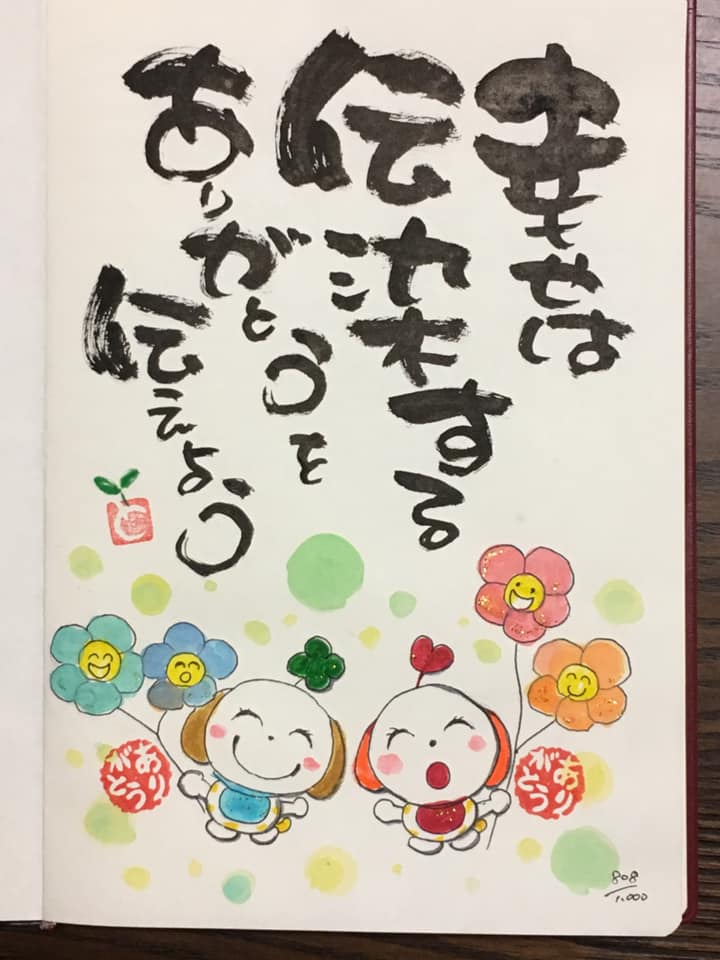 幸せは
伝染する
ありがとうを
伝えよう
ありがとう
ありがとう
808/1.000